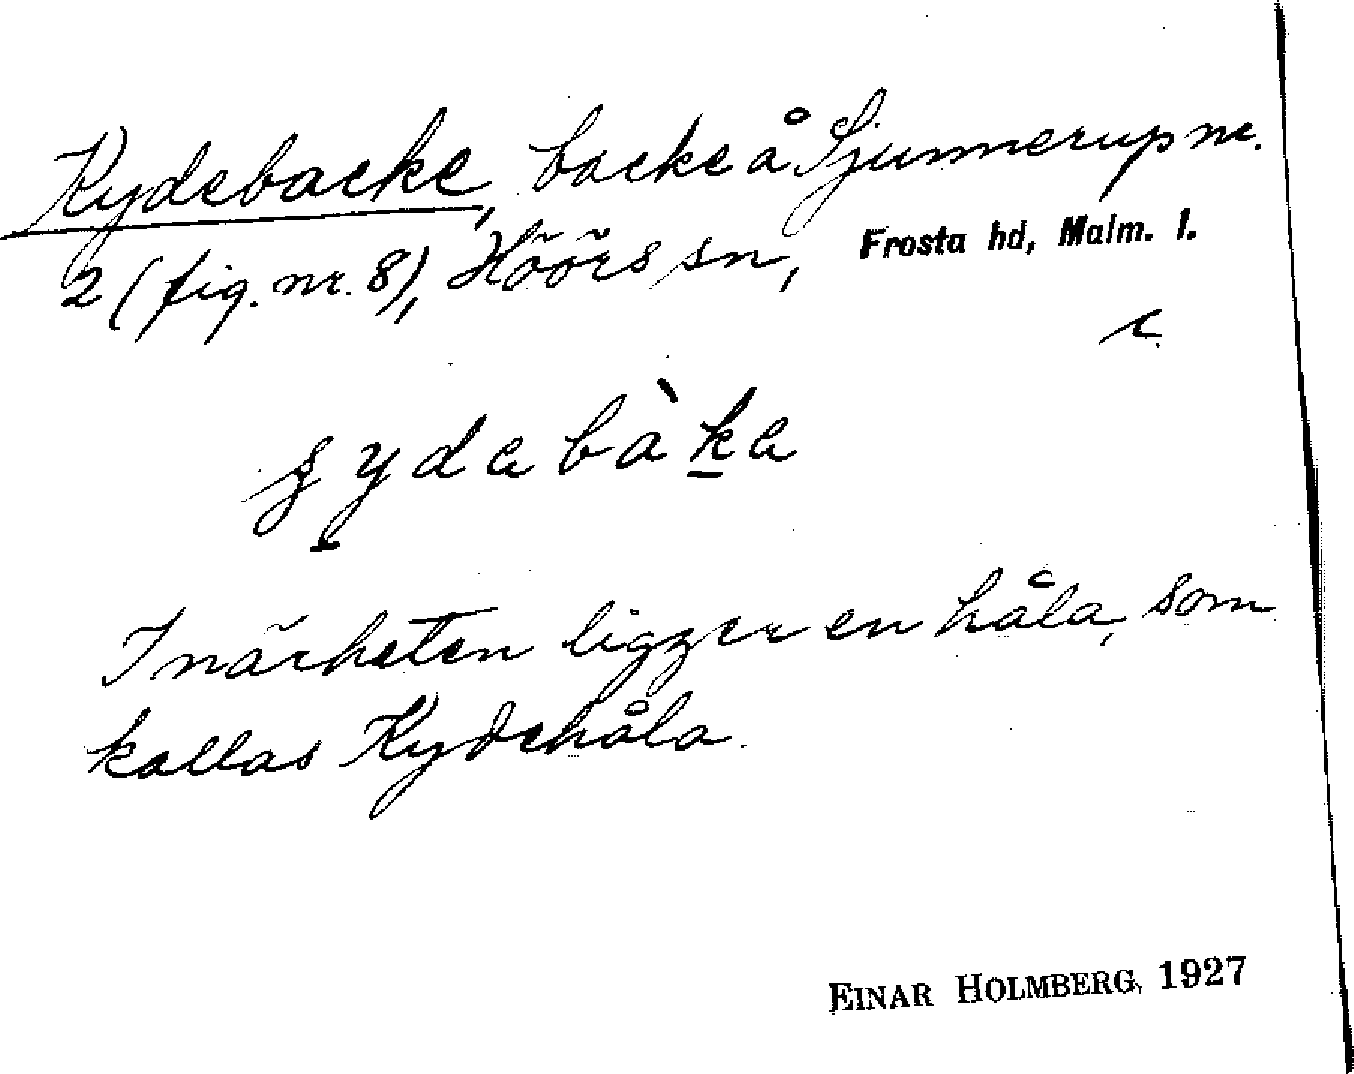 Kydebacke, backe å Sjunnerup nr.
2 (fig. nr. 8), Höörs sn, Frosta hd, Malm. l.
I närheten ligger en håla, som
kallas Kydehåla.
EINAR HOLMBERG, 1927